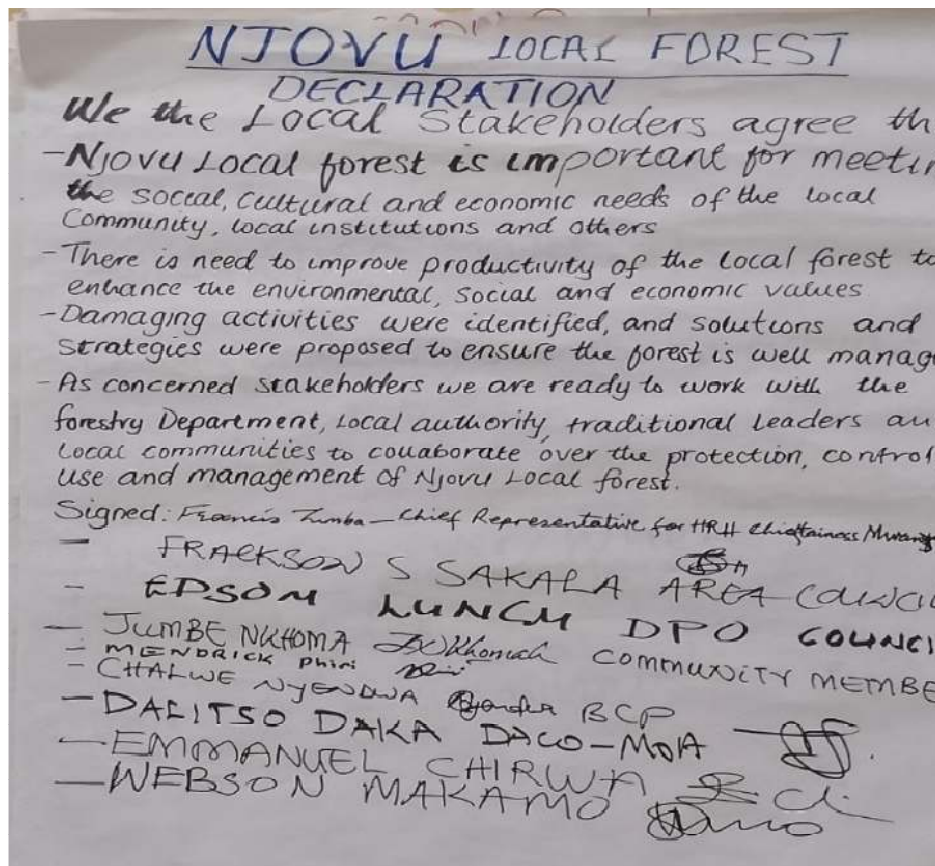 NJOVU LOCAL FOREST
DECLARATION
We the Local Stakeholders agree th
- Njovu Local forest is important for meetin
the social, cultural and economic needs of the local
Community, local institutions and others
- There is need to improve productivity of the local forest to
enhance the environmental, social and economic values
- Damaging activities were identified, and solutions and
Strategies were proposed to ensure the forest is well manag
- As concerned stakeholders we are ready to work with the
forestry Department, Local authority, traditional leaders an
Local communities to collaborate over the protection, control
use and management of Njovu Local forest.
Signed: Francis Zimba - Chief Representative for HRH Chieftainess
- FRACKSON S SAKALA AREA COUNCIL
- EDSOM LUNGU DPO COUNCI
- JUMBE NKHOMA COMMUNITY MEMBE
- MENDRICK Phiri
- CHALWE NYENDWA BCP
- DALITSO DAKA DACO-MOA
- EMMANUEL CHIRWA
- WEBSON MAKAMO